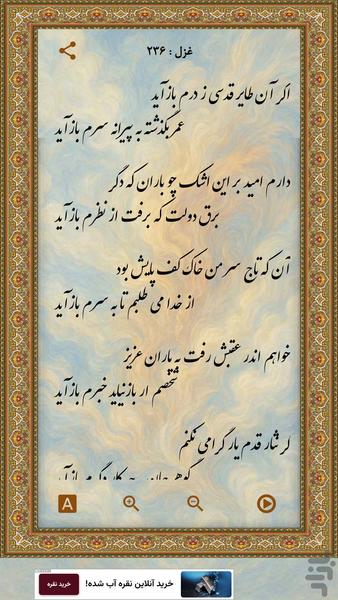 غزل : ۲۳۶
اگر آن طایر قدسی ز درم بازآید
عمر بگذشته به پیرانه سرم بازآید
دارم امید بر این اشک چو باران که دگر
برق دولت که برفت از نظرم بازآید
آن که تاج سر من خاک کف پایش بود
از خدا می طلبم تا به سرم بازآید
خواهم اندر عقبش رفت به یاران عزیز
شخصم ار بازنیاید خبرم بازآید
گر نثار قدم یار گرامی نکنم
گوهر جان به چه کار دگرم بازآید
A
خرید آنلاین نقره آب شده!
خرید نقره
بازار